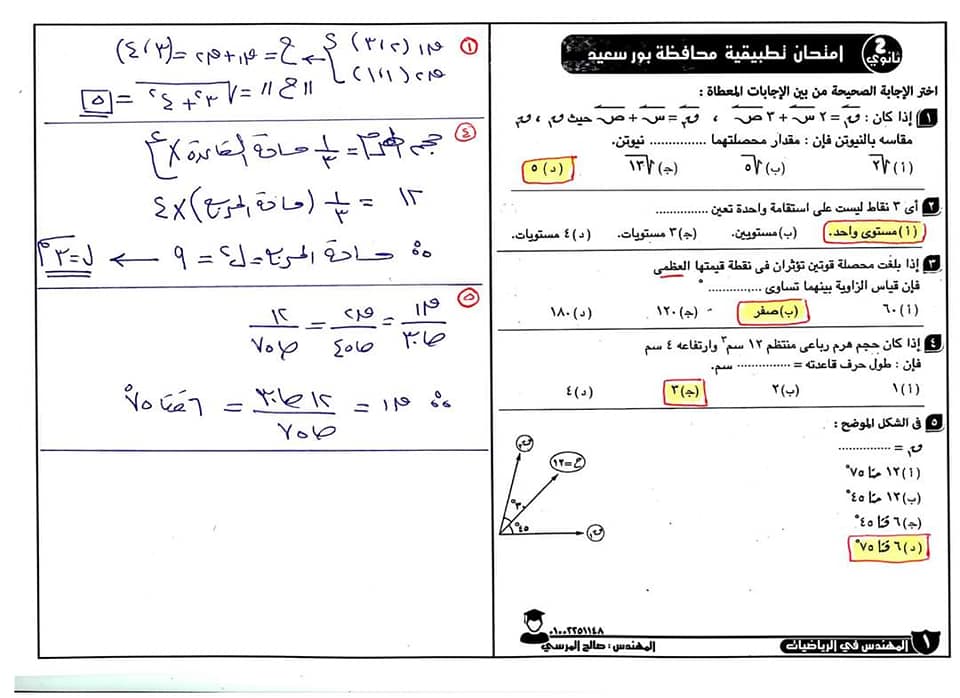 امتحان تطبيقية محافظة بور سعيد
2 ثانوي
اختر الإجابة الصحيحة من بين الإجابات المعطاة :
١ إذا كان : ق١ = ٢ س + ٣ ص ، ق٢ = س + ص حيث ق١ ، ق٢
مقاسه بالنيوتن فإن : مقدار محصلتهما ............... نيوتن.
(أ) √٢ (ب) √٥ (ج) √١٣ (د) ٥
٢ أى ٣ نقاط ليست على استقامة واحدة تعين ..............
(أ) مستوى واحد. (ب) مستويين. (ج) ٣ مستويات. (د) ٤ مستويات.
٣ إذا بلغت محصلة قوتين تؤثران فى نقطة قيمتها العظمى
فإن قياس الزاوية بينهما تساوى ..............°
(أ) ٦٠ (ب) صفر (ج) ١٢٠ (د) ١٨٠
٤ إذا كان حجم هرم رباعى منتظم ١٢ سم٣ وارتفاعه ٤ سم
فإن : طول حرف قاعدته = ............... سم.
(أ) ١ (ب) ٢ (ج) ٣ (د) ٤
٥ فى الشكل الموضح :
ق١ = ...............
(أ) ١٢ حتا ٧٥°
(ب) ١٢ حتا ٤٥°
(ج) ٦ قتا ٤٥°
(د) ٦ قتا ٧٥°
ق٢
ح = ١٢
٣٠°
٤٥°
ق١
٠١٠٠٢٢٥١١٤٨
المهندس : صالح المرسي
المهندس في الرياضيات
١
١ ق١ (٣،٢) ق٢ (١،١) ← ح = ق١ + ق٢ = (٤،٣)
||ح|| = √٣² + ٤² = ٥
٤ حجم الهرم = ١/٣ مساحة القاعدة × ع
١٢ = ١/٣ (مساحة المربع) × ٤
∴ مساحة المربع = ل² = ٩ ← ل = ٣
٥ ق١/حا ٣٠ = ق٢/حا ٤٥ = ١٢/حا ٧٥
∴ ق١ = ١٢ حا ٣٠/حا ٧٥ = ٦ قتا ٧٥°